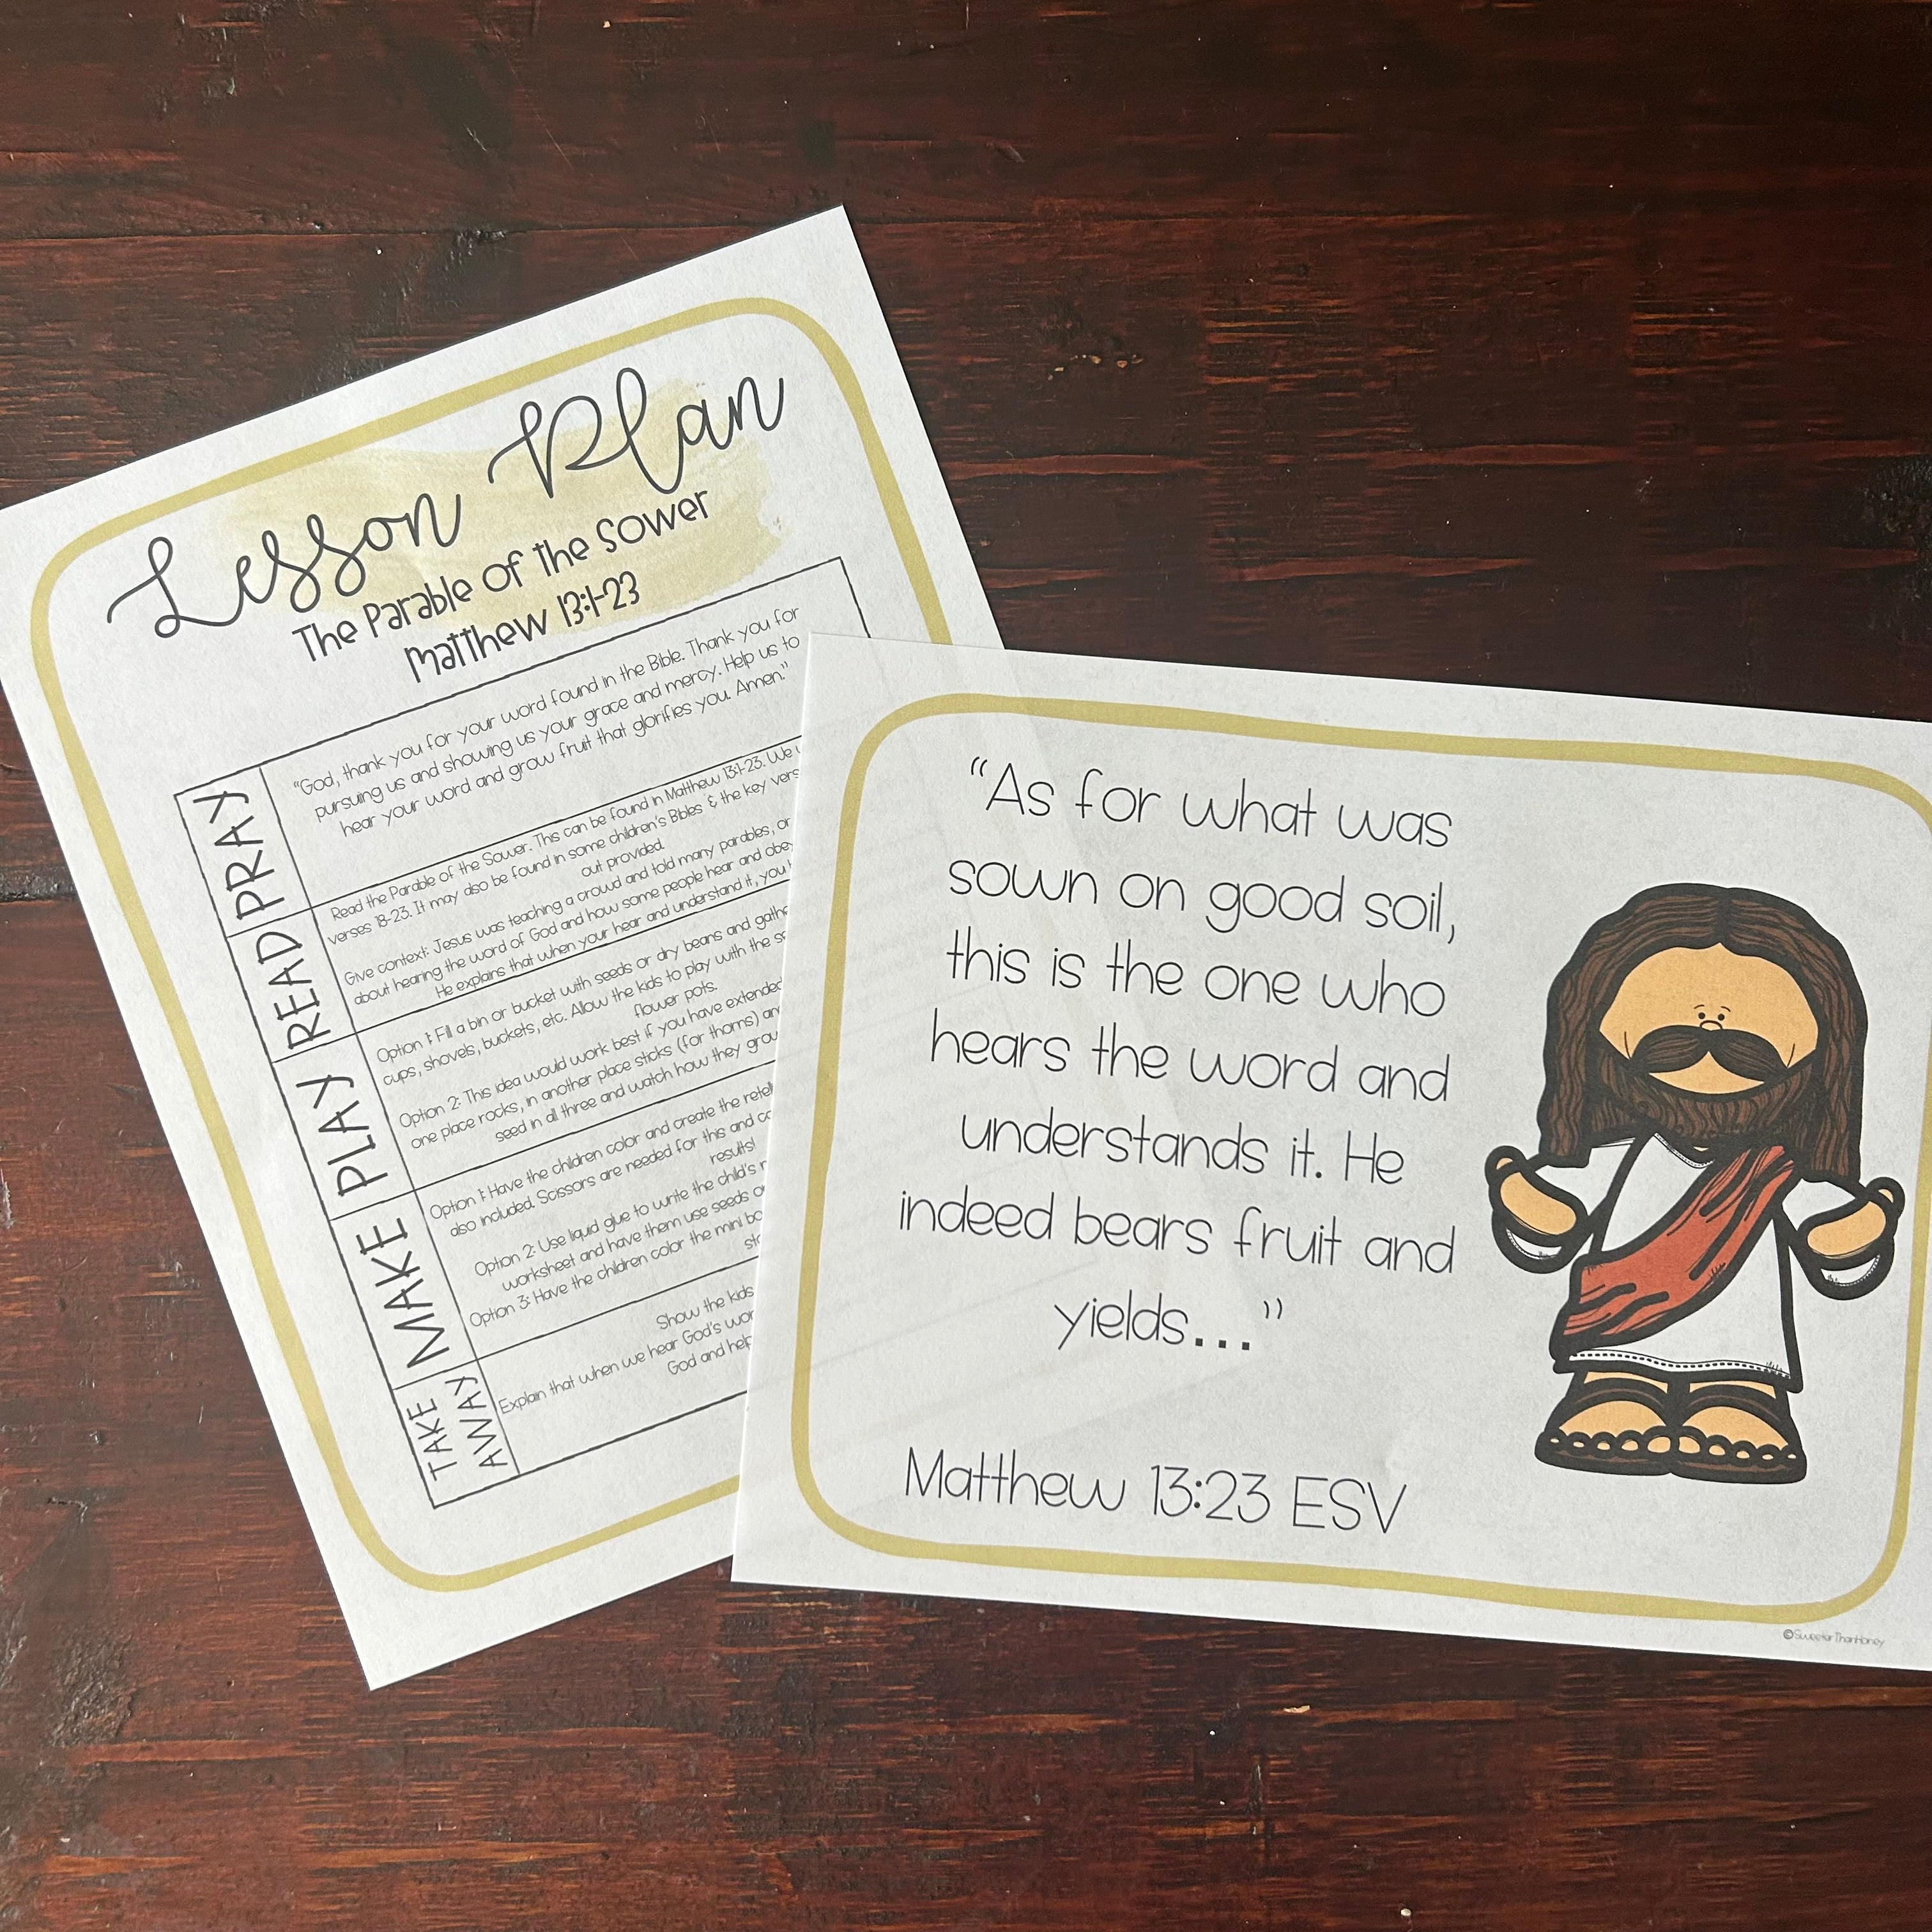 Lesson Plan
The Parable of the Sower
Matthew 13:1-23
PRAY
"God, thank you for your word found in the Bible. Thank you for
pursuing us and showing us your grace and mercy. Help us to
hear your word and grow fruit that glorifies you. Amen."
READ
Read the Parable of the Sower. This can be found in Matthew 13:1-23. We
verses 18-23. It may also be found in some children's Bibles & the key
out provided.
Give context: Jesus was teaching a crowd and told many parables, or
about hearing the word of God and how some people hear and obey
He explains that when your hear and understand it, you
PLAY
Option 1: Fill a bin or bucket with seeds or dry beans and
cups, shovels, buckets, etc. Allow the kids to play with the
flower pots.
Option 2: This idea would work best if you have extended
one place rocks, in another place sticks (for thorns)
seed in all three and watch how they
MAKE
Option 1: Have the children color and create the
also included. Scissors are needed for this and
results!
Option 2: Use liquid glue to write the child's
worksheet and have them use seeds
Option 3: Have the children color the mini
TAKE
AWAY
Show the kids
Explain that when we hear God's
God and
"As for what was
sown on good soil,
this is the one who
hears the word and
understands it. He
indeed bears fruit and
yields..."
Matthew 13:23 ESV
©SweeterThanHoney